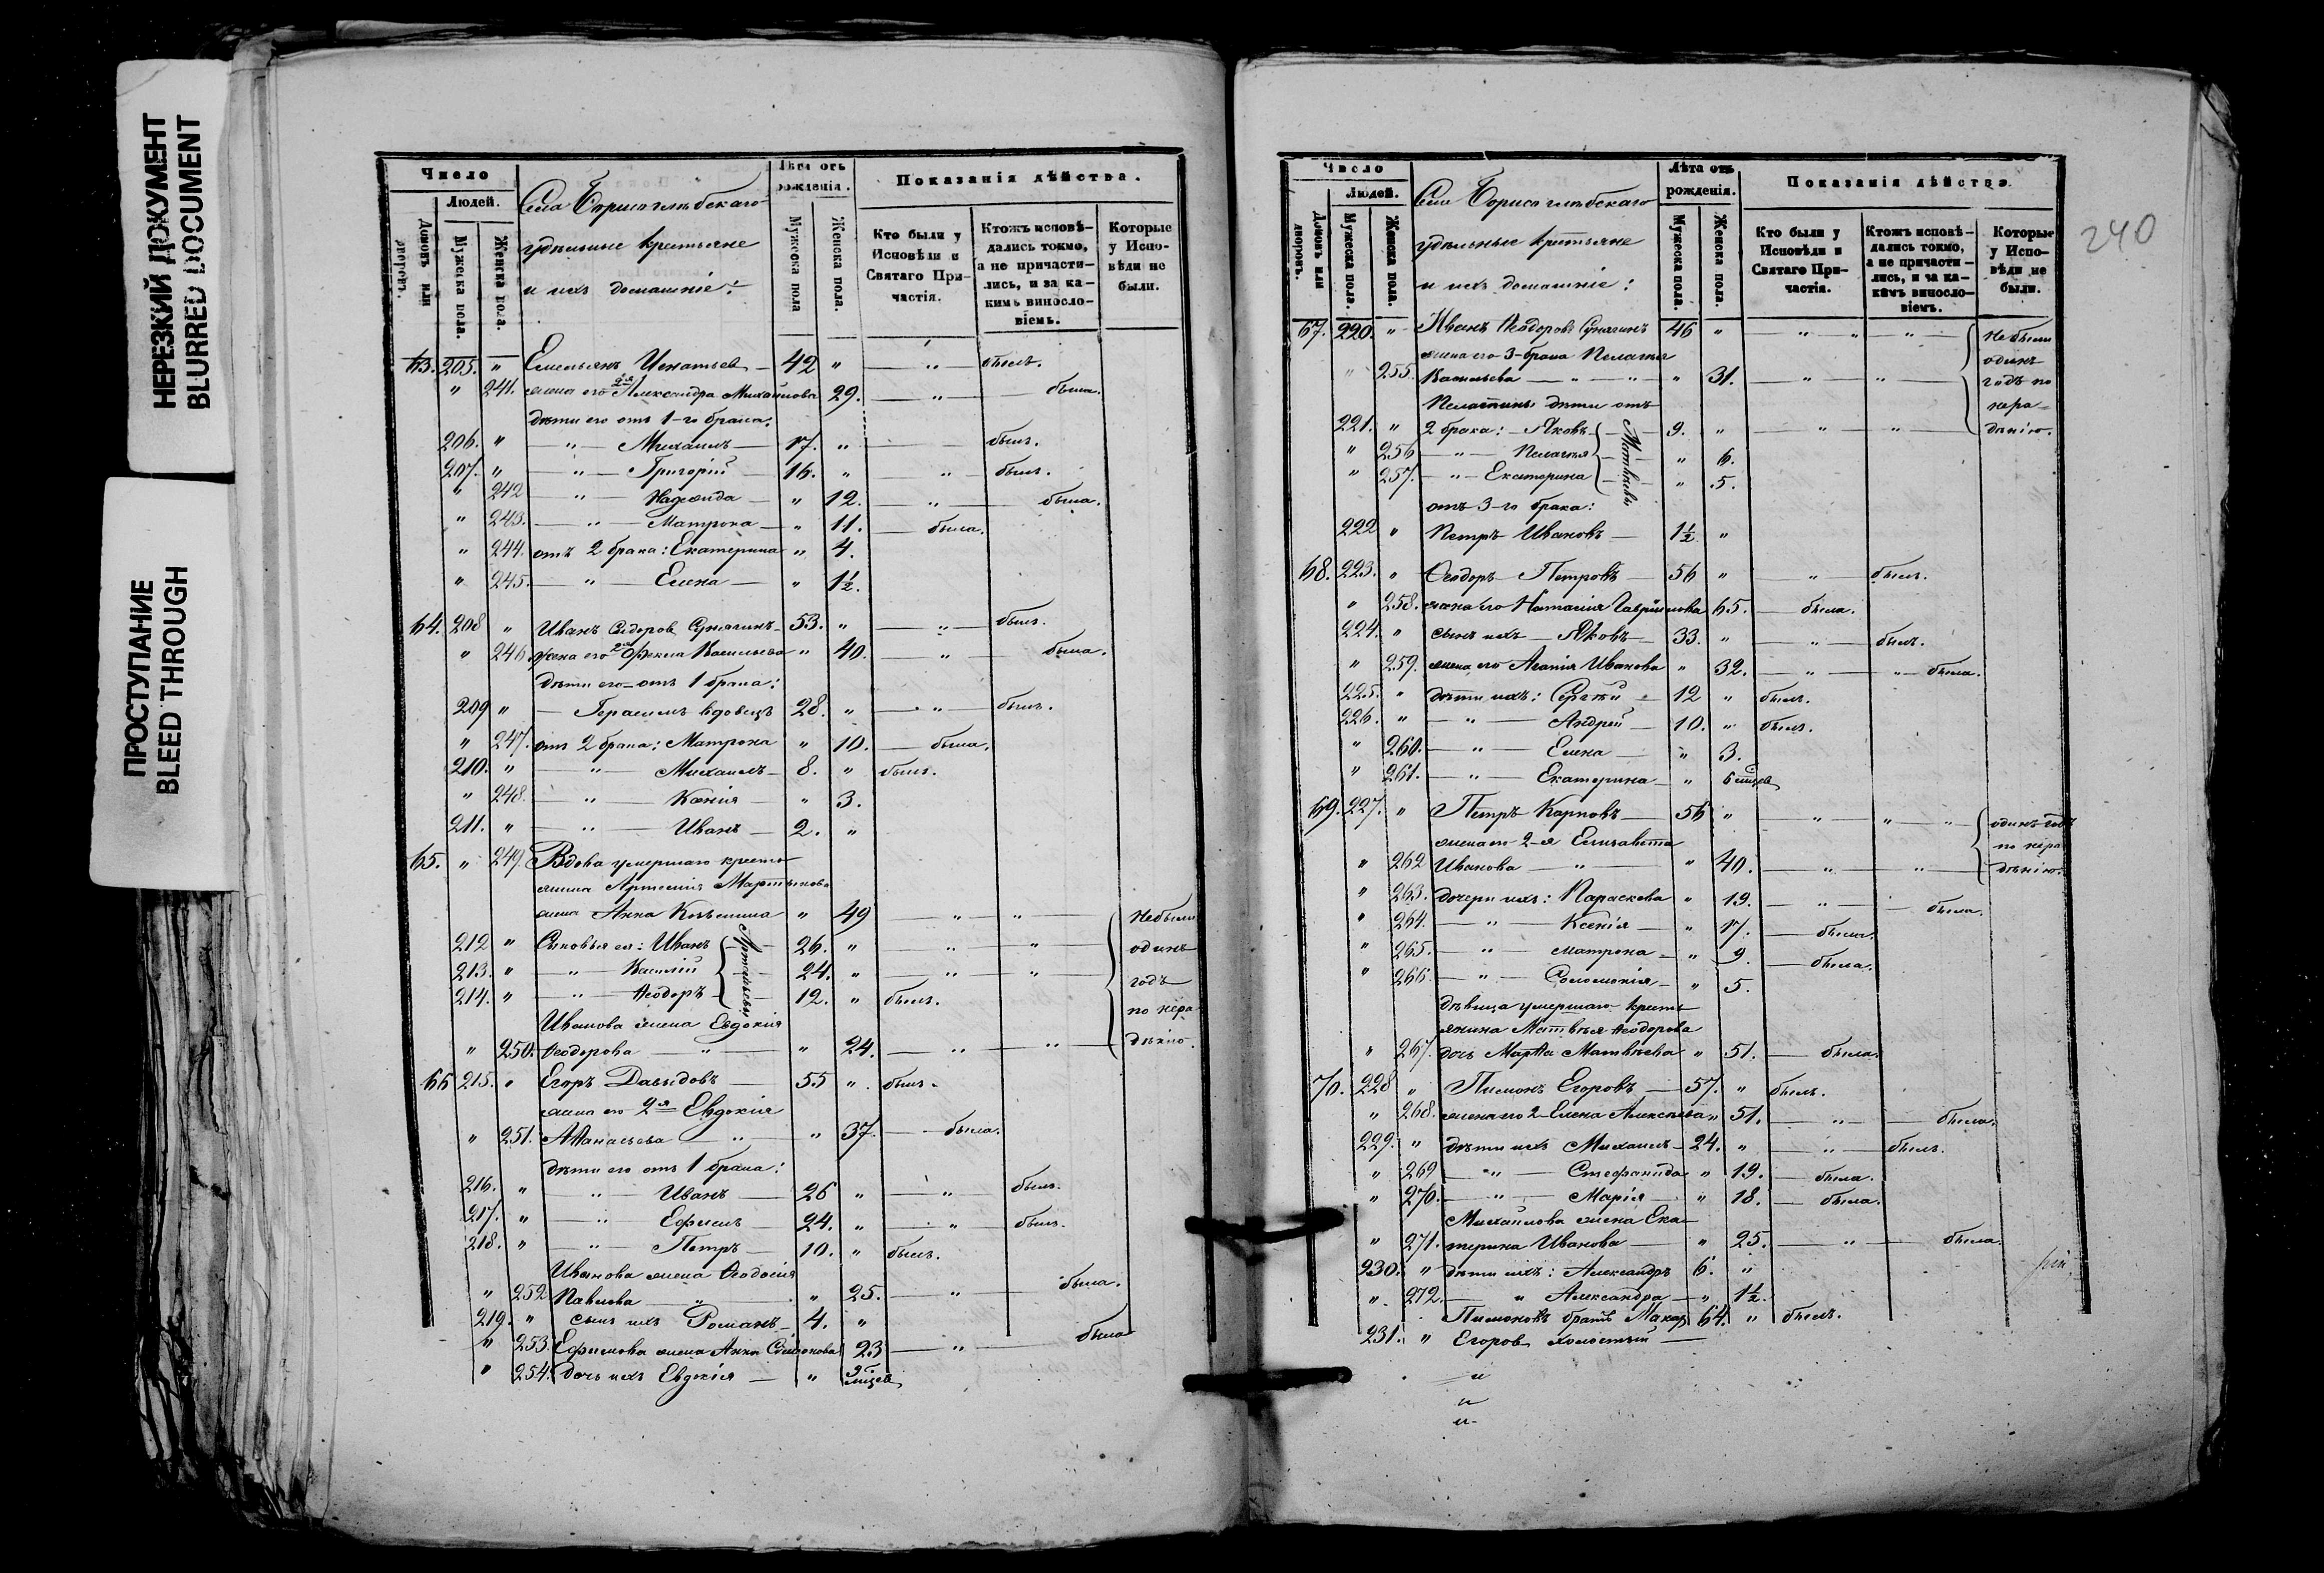 НЕРЕЗКИЙ ДОКУМЕНТ
BLURRED DOCUMENT
ПРОСТУПАНИЕ
BLEED THROUGH
Число
Людей.
Домовъ или дворовъ.
Мужеска пола.
Женска пола.
Села Борисоглѣбскаго
удѣльные крестьяне
и ихъ домашніе:
Лѣта отъ рожденія.
Мужеска пола
Женска пола.
Показанія дѣйства.
Кто были у Исповѣди и Святаго Причастія.
Ктожъ исповѣдались токмо, а не причастились, и за какимъ винословіемъ.
Которые у Исповѣди не были.
63. 205. " Емельянъ Игнатьев 42 " " былъ.
" 241. жена его 2я Александра Михайлова 29. " была.
дѣти его отъ 1-го брака:
206. " " Михаилъ 17. " былъ.
207. " " Григорій 16. " " былъ.
" 242 " Надежда " 12. " была.
" 243. " Матрона " 11. была.
" 244. отъ 2 брака: Екатерина " 4.
" 245. " Елена " 1½.
64. 208 " Иванъ Сидоров 53. " " былъ.
" 246 жена его 2я Фекла Васильева " 40. " была.
дѣти его отъ 1 брака:
209 " Герасимъ вдовецъ 28. " " былъ.
" 247. отъ 2 брака: Матрона " 10. была.
210. " " Михаилъ 8. " былъ.
" 248. " Ксенія " 3.
211. " " Иванъ 2. "
65. " 249. Вдова умершаго кресть
янина Артемія Мартынова
жена Анна Козьмина " 49 " " Небыли
212 " Сыновья ея: Иванъ 26. " " " одинъ
213. " " Василій 24. " " " годъ
214. " " Ѳеодоръ 12. " былъ. по нера
Артемьевы
Иванова жена Евдокія
" 250. Ѳеодорова " " 24. " " дѣнію.
66 215. " Егоръ Давыдовъ 55 " былъ.
жена его 2я Евдокія
" 251. Аѳанасьева " " 37. была.
дѣти его отъ 1 брака:
216. " " Иванъ 26 " " былъ.
217. " " Ефимъ 24. " " былъ.
218. " " Петръ 10. " былъ.
Иванова жена Ѳеодосія
" 252 Павлова " " 25. " была.
219. " сынъ ихъ Романъ 4. "
" 253. Ефимова жена Анна Симонова 23 " была
" 254. дочь ихъ Евдокія "
240
Число
Людей.
Домовъ или дворовъ.
Мужеска пола.
Женска пола.
Села Борисоглѣбскаго
удѣльные крестьяне
и ихъ домашніе:
Лѣта отъ рожденія.
Мужеска пола.
Женска пола.
Показанія дѣйства.
Кто были у Исповѣди и Святаго Причастія.
Ктожъ исповѣдались токмо, а не причастились, и за какимъ винословіемъ.
Которые у Исповѣди не были.
67. 220. " Иванъ Ѳеодоровъ 46 " " " " Небыли
жена его 3-брака Пелагія одинъ
" 255. Васильева " " " 31. " " годъ по
Пелагіины дѣти отъ нера-
221. " 2 брака: Яковъ 9. " " " дѣнію.
" 256 " Пелагія " 6.
" 257. " Екатерина " 5.
Матвѣевы
отъ 3-го брака:
222 " Петръ Ивановъ 1½ "
68. 223. " Ѳеодоръ Петровъ 56 " " былъ.
" 258. жена его Наталія Гаврилова 65. была.
224. " сынъ ихъ Яковъ 33. " " былъ.
" 259. жена его Агапія Иванова " 32. " " была.
225. " дѣти ихъ: Сергѣй 12 " былъ.
226. " " Андрей 10. " былъ.
" 260. " Елена " 3.
" 261. " Екатерина " 6 мцев
69. 227. " Петръ Карповъ 56 " " " " одинъ годъ
жена его 2-я Елизавета по нера
" 262 Иванова " " 40. " " дѣнію.
" 263. дочери ихъ: Параскева " 19. " была.
" 264. " Ксенія " 17. была.
" 265. " Матрона " 9. была.
" 266. " Соломонія " 5.
дѣвица умершаго кресть
янина Матвѣя Ѳеодорова
" 267. дочь Марѳа Матвѣева " 51. была.
70. 228 " Пимонъ Егоровъ 57. " былъ.
" 268. жена его 2-Елена Алексѣева " 51. " была.
229. " дѣти ихъ Михаилъ 24. " " былъ.
" 269 " Стефанида " 19. была.
" 270. " Марія " 18. была.
Михайлова жена Ека
" 271. терина Иванова " 25. " была.
230. " дѣти ихъ: Александръ 6. "
" 272. " Александра " 1½.
Пимоновъ братъ Макар 64. " былъ.
231. " Егоров холостый